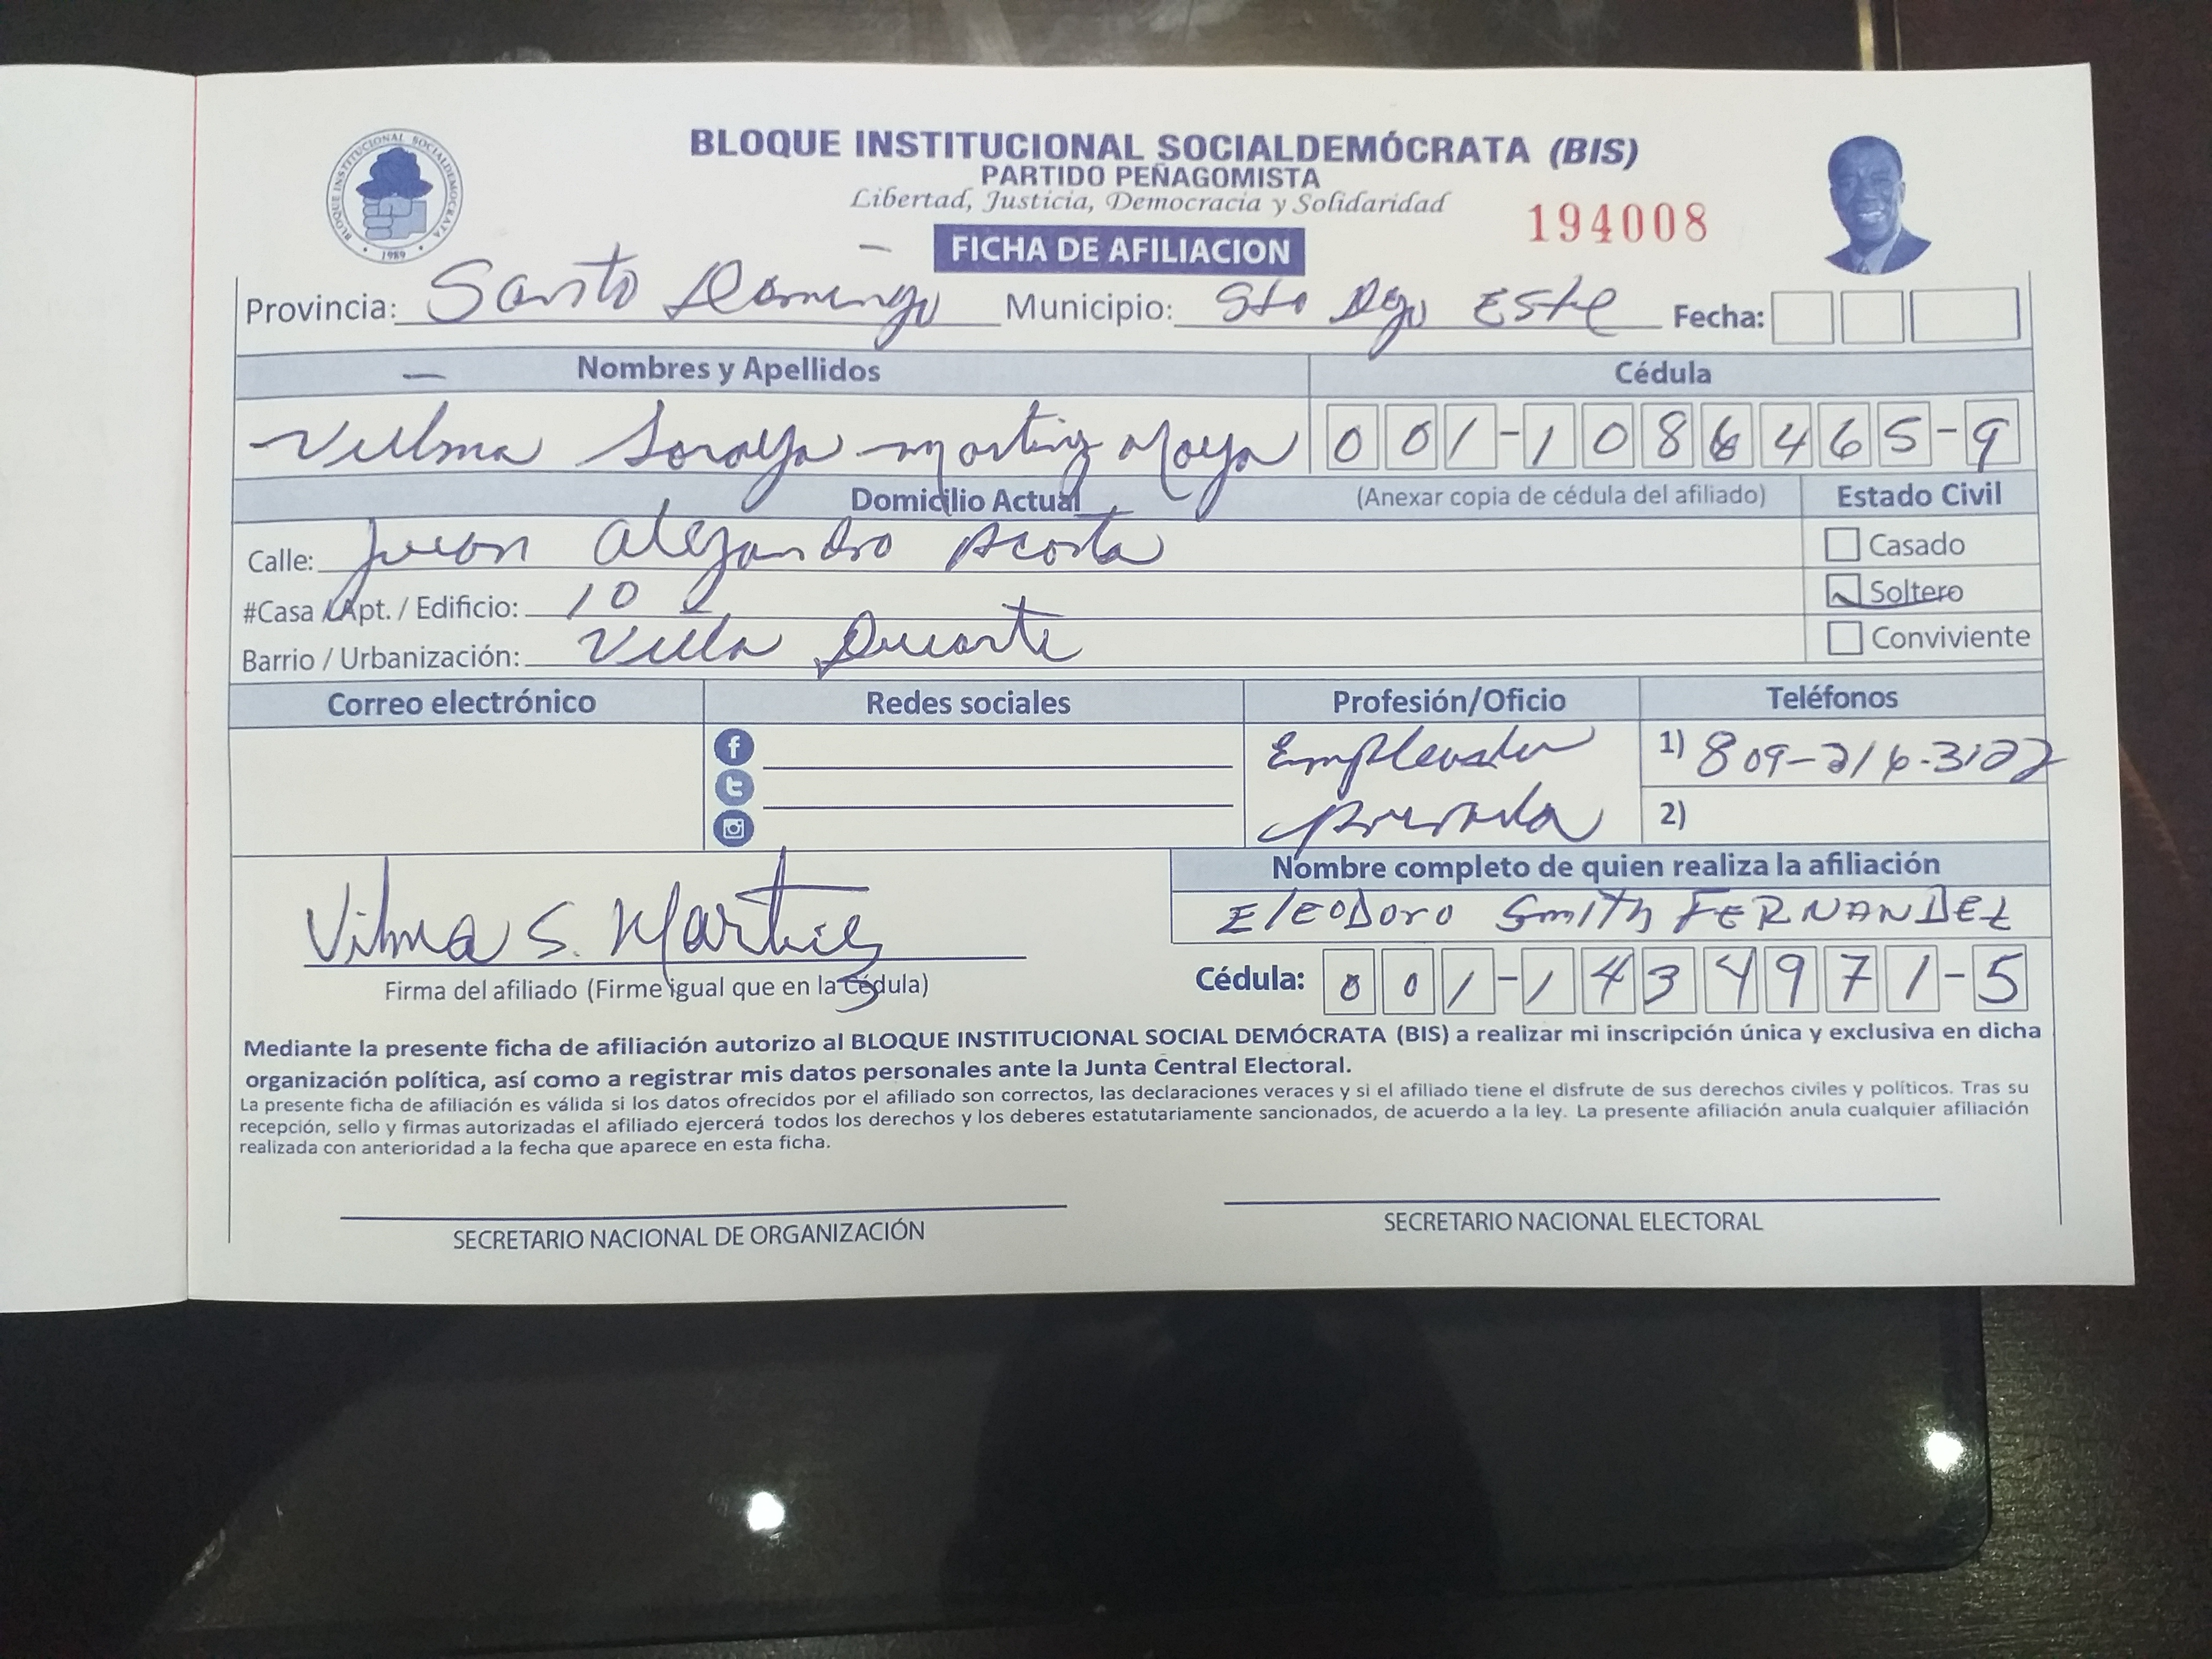 BLOQUE INSTITUCIONAL SOCIALDEMÓCRATA
1989
BLOQUE INSTITUCIONAL SOCIALDEMÓCRATA (BIS)
PARTIDO PEÑAGOMISTA
Libertad, Justicia, Democracia y Solidaridad
194008
FICHA DE AFILIACION
Provincia: Santo Domingo Municipio: Sto Dgo Este Fecha:
Nombres y Apellidos Cédula
Vilma Soraya Martinez Moya 001-1086465-9
Domicilio Actual (Anexar copia de cédula del afiliado) Estado Civil
Calle: Juan Alejandro Acosta Casado
#Casa / Apt. / Edificio: 10 Soltero
Barrio / Urbanización: Villa Duarte Conviviente
Correo electrónico Redes sociales Profesión/Oficio Teléfonos
Empleada 1) 809-216-3122
privada 2)
Nombre completo de quien realiza la afiliación
ElEODoro SmITh FERNANDEZ
Vilma S. Martinez
Firma del afiliado (Firme igual que en la Cédula) Cédula: 001-1434971-5
Mediante la presente ficha de afiliación autorizo al BLOQUE INSTITUCIONAL SOCIAL DEMÓCRATA (BIS) a realizar mi inscripción única y exclusiva en dicha
organización política, así como a registrar mis datos personales ante la Junta Central Electoral.
La presente ficha de afiliación es válida si los datos ofrecidos por el afiliado son correctos, las declaraciones veraces y si el afiliado tiene el disfrute de sus derechos civiles y políticos. Tras su
recepción, sello y firmas autorizadas el afiliado ejercerá todos los derechos y los deberes estatutariamente sancionados, de acuerdo a la ley. La presente afiliación anula cualquier afiliación
realizada con anterioridad a la fecha que aparece en esta ficha.
SECRETARIO NACIONAL DE ORGANIZACIÓN SECRETARIO NACIONAL ELECTORAL